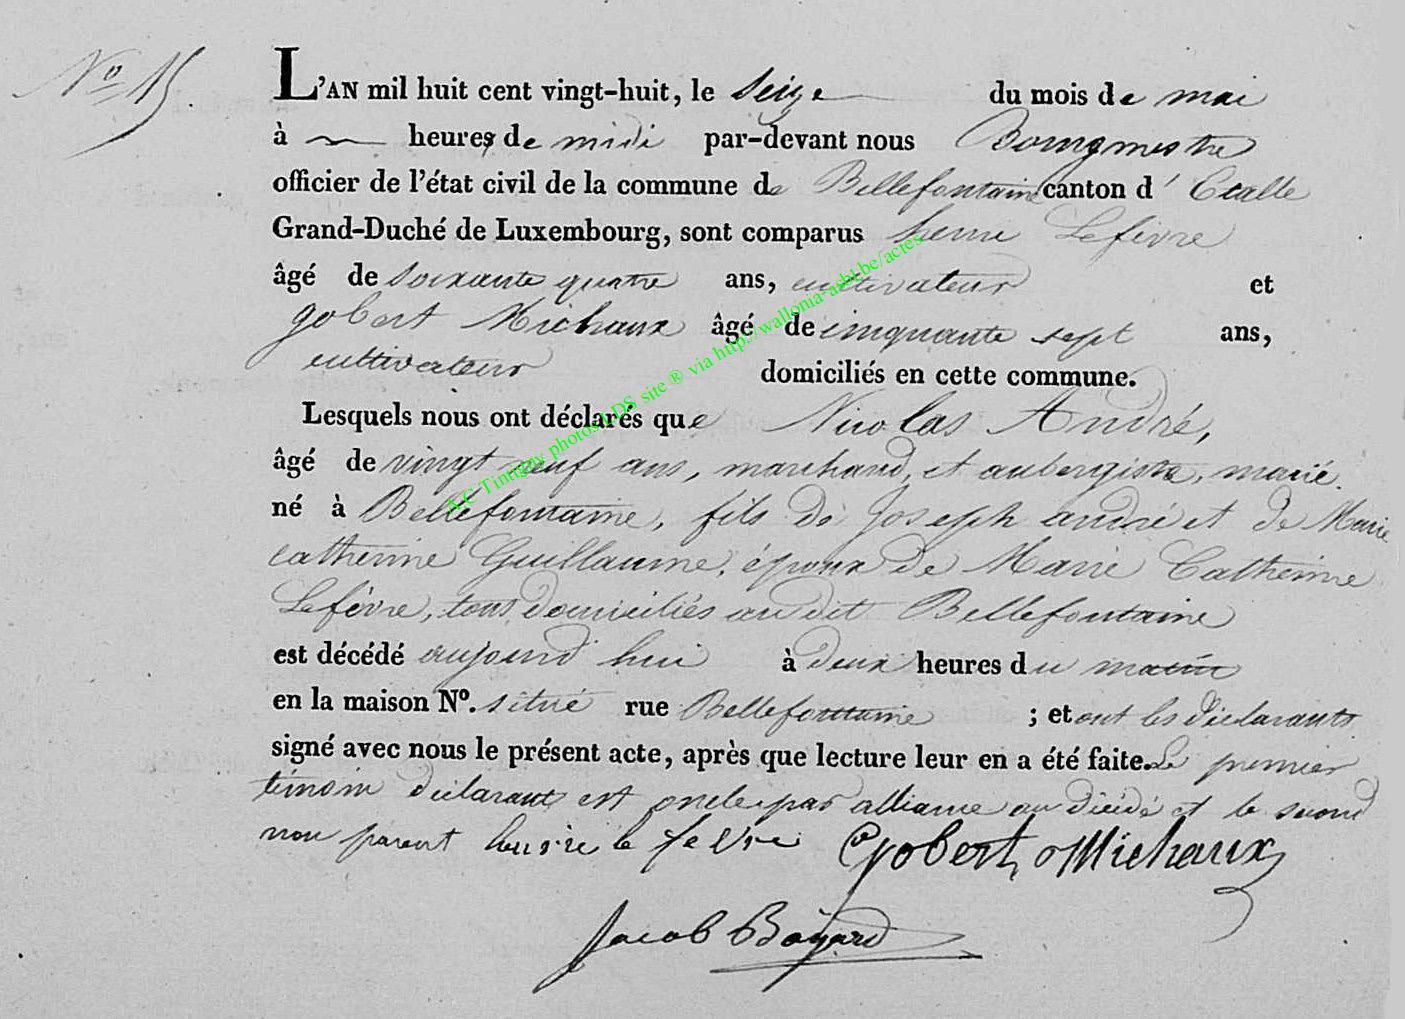 No 15.
L'AN mil huit cent vingt-huit, le Seize du mois de mai
à heures de midi par-devant nous Bourgmestre
officier de l'état civil de la commune de Bellefontaine canton d'Etalle
Grand-Duché de Luxembourg, sont comparus henri Lefèvre
âgé de Soixante quatre ans, cultivateur et
gobert Michaux âgé de cinquante sept ans,
cultivateur domiciliés en cette commune.
Lesquels nous ont déclarés que Nicolas André,
âgé de vingt neuf ans, marchand, et aubergiste, marié.
né à Bellefontaine, fils de joseph andré et de Marie
catherine Guillaume, époux de Marie Catherine
Lefèvre, tous domiciliés au dit Bellefontaine
est décédé aujourd hui à deux heures du matin
en la maison No. situé rue Bellefontaine ; et ont les déclarants
signé avec nous le présent acte, après que lecture leur en a été faite. Le premier
témoin déclarant est oncle par alliance au décédé et le second
non parent le fevre Gobert Michaux
Jacob
AC Tintigny photos LDS site ® via http://wallonia-asbl.be/actes